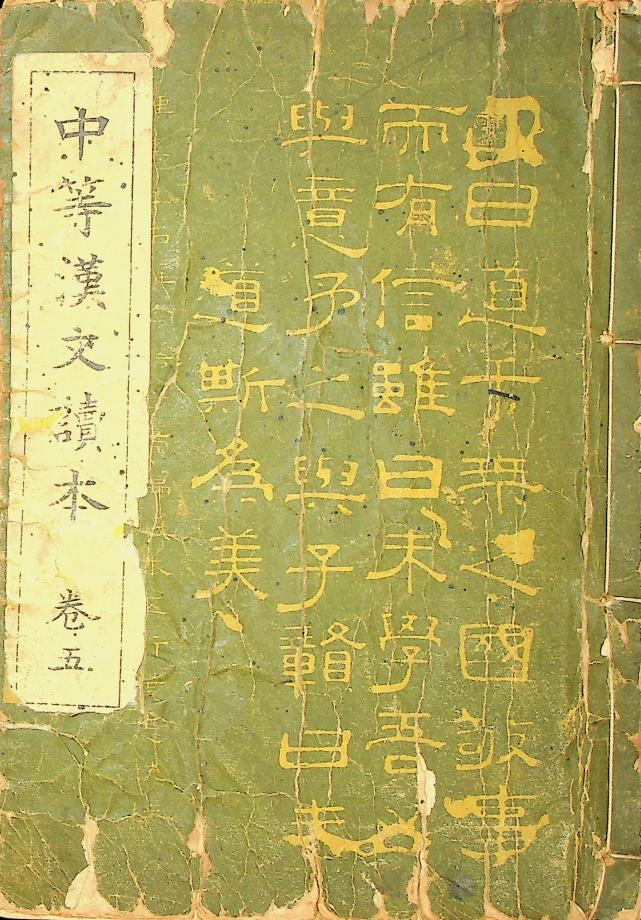 曰道千乘之國敬事
而有信雖曰未學吾必
與意予之與子贛曰夫
道斯為美
中等漢文讀本 卷五